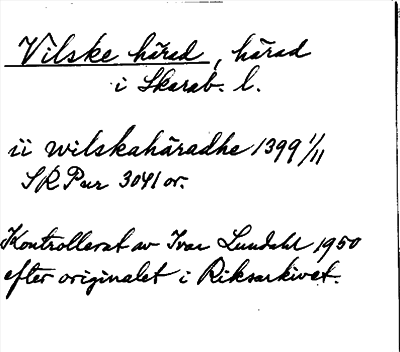 Vilske härad, härad
i Skarab. l.
ii wilskahäradhe 1399 1/11
SRPur 3041 or.
Kontrollerat av Ivar Lundahl 1950
efter originalet i Riksarkivet.